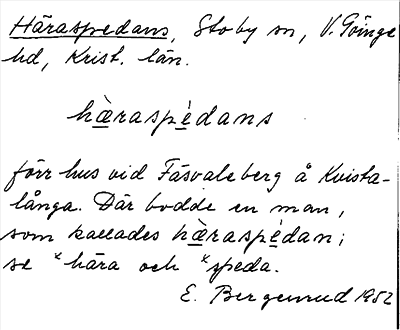 Häraspedans, Stoby sn, V. Göinge
hd, Krist. län.
hæ̀raspédans
förr hus vid Fäsvaleberg å Kvista-
långa. Där bodde en man,
som kallades hæ̀raspédan;
se *hära och *speda.
E. Bergerud 1952